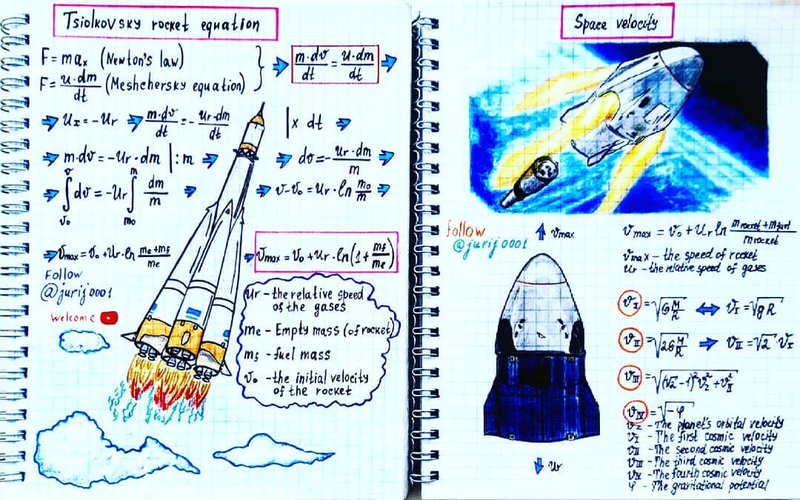 Tsiolkovsky rocket equation
F = maₓ (Newton's law)
F = u·dm/dt (Meshchersky equation)
m·dv/dt = u·dm/dt
uₓ = -Ur
m·dv/dt = - Ur·dm/dt | x dt
m·dv = -Ur·dm | : m
dv = - Ur·dm/m
∫ᵥ₀ᵛ dv = -Ur ∫ₘ₀ᵐ dm/m
v - v₀ = Ur · ln m₀/m
Vmax = v₀ + Ur · ln (me + mf)/me
Vmax = v₀ + Ur · ln (1 + mf/me)
Follow
@jurij0001
Welcome
Ur - the relative speed
of the gases
me - Empty mass (of rocket)
mf - fuel mass
v₀ - the initial velocity
of the rocket
Space velocity
Follow
@jurij0001
Vmax
Ur
Vmax = v₀ + Ur ln (m rocket + m fuel)/m rocket
Vmax - the speed of rocket
Ur - the relative speed of gases
v_I = √(G M/R) ⇔ v_I = √(gR)
v_II = √(2G M/R) ⇒ v_II = √2 · v_I
v_III = √((√2 - 1)² v_z² + v_II²)
v_IV = √(-φ)
v_z - The planet's orbital velocity
v_I - The first cosmic velocity
v_II - The second cosmic velocity
v_III - The third cosmic velocity
v_IV - The fourth cosmic velocity
φ - The gravitational potential